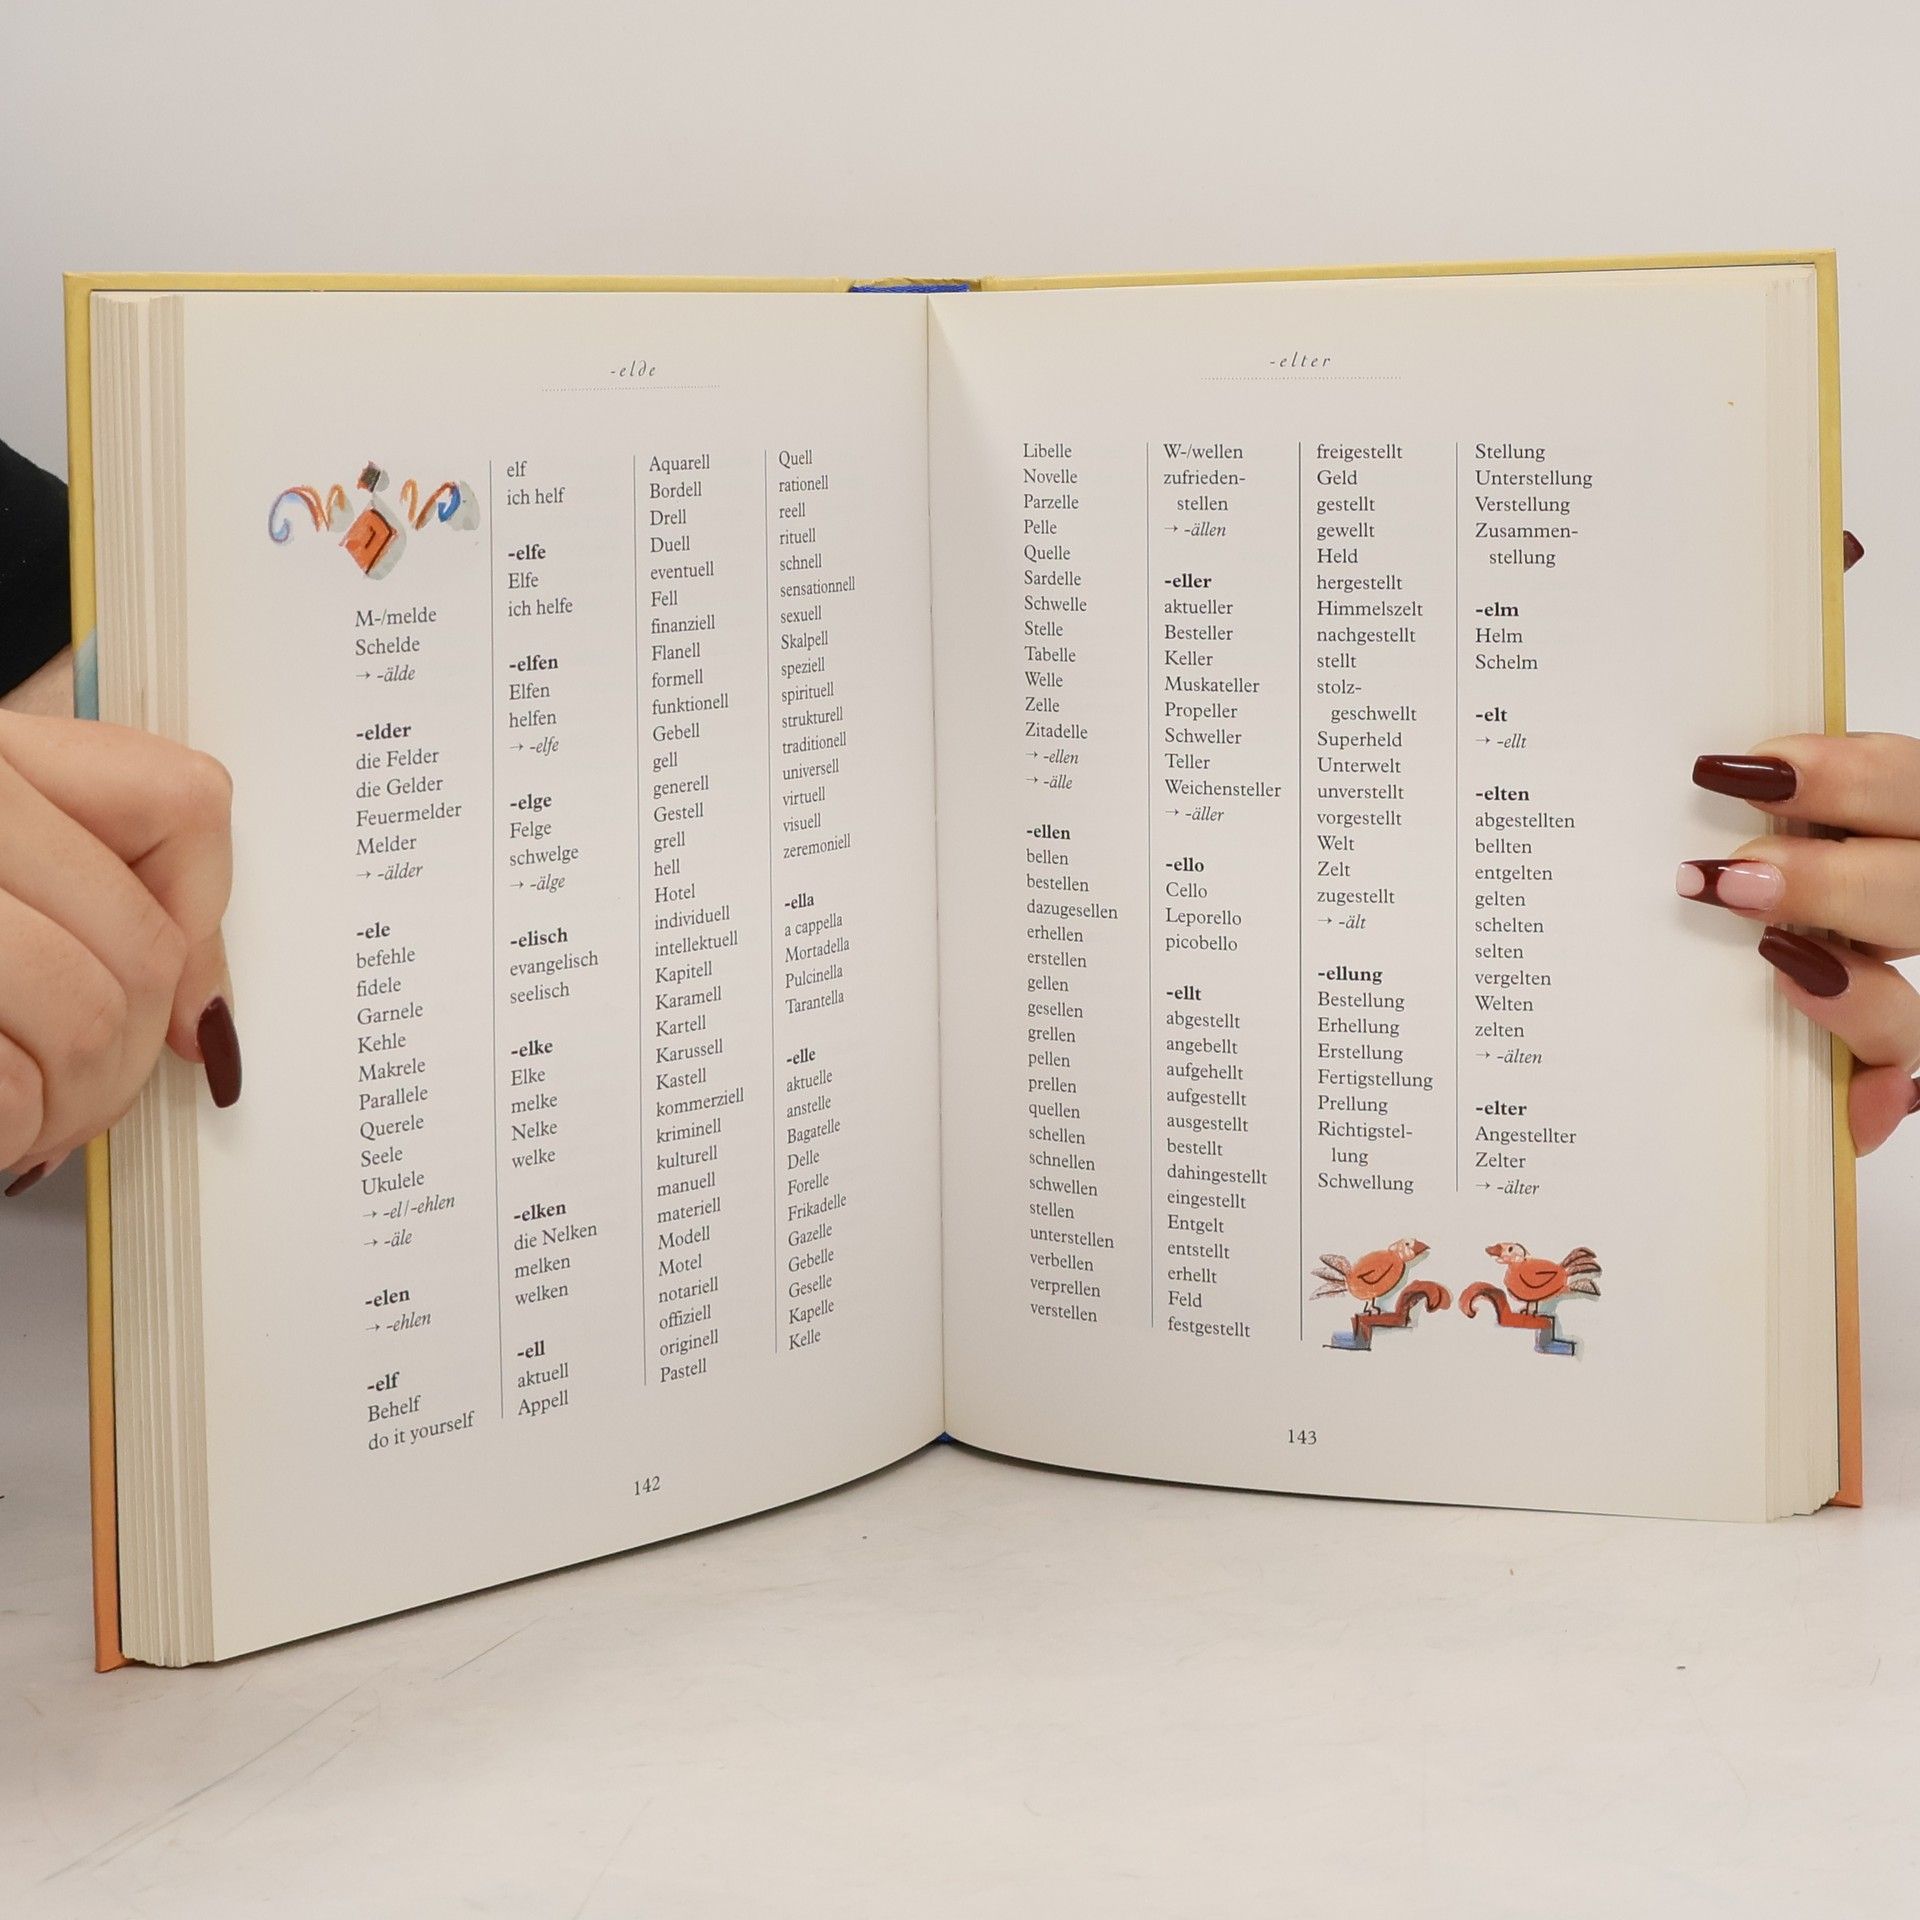 -elde
M-/melde
Schelde
→ -älde
-elder
die Felder
die Gelder
Feuermelder
Melder
→ -älder
-ele
befehle
fidele
Garnele
Kehle
Makrele
Parallele
Querele
Seele
Ukulele
→ -el/-ehlen
→ -äle
-elen
→ -ehlen
-elf
Behelf
do it yourself
elf
ich helf
-elfe
Elfe
ich helfe
-elfen
Elfen
helfen
→ -elfe
-elge
Felge
schwelge
→ -älge
-elisch
evangelisch
seelisch
-elke
Elke
melke
Nelke
welke
-elken
die Nelken
melken
welken
-ell
aktuell
Appell
Aquarell
Bordell
Drell
Duell
eventuell
Fell
finanziell
Flanell
formell
funktionell
Gebell
gell
generell
Gestell
grell
hell
Hotel
individuell
intellektuell
Kapitell
Karamell
Kartell
Karussell
Kastell
kommerziell
kriminell
kulturell
manuell
materiell
Modell
Motel
notariell
offiziell
originell
Pastell
Quell
rationell
reell
rituell
schnell
sensationnell
sexuell
Skalpell
speziell
spirituell
strukturell
traditionell
universell
virtuell
visuell
zeremoniell
-ella
a cappella
Mortadella
Pulcinella
Tarantella
-elle
aktuelle
anstelle
Bagatelle
Delle
Forelle
Frikadelle
Gazelle
Gebelle
Geselle
Kapelle
Kelle
142
-elter
Libelle
Novelle
Parzelle
Pelle
Quelle
Sardelle
Schwelle
Stelle
Tabelle
Welle
Zelle
Zitadelle
→ -ellen
→ -älle
-ellen
bellen
bestellen
dazugesellen
erhellen
erstellen
gellen
gesellen
grellen
pellen
prellen
quellen
schellen
schnellen
schwellen
stellen
unterstellen
verbellen
verprellen
verstellen
W-/wellen
zufrieden-
stellen
→ -ällen
-eller
aktueller
Besteller
Keller
Muskateller
Propeller
Schweller
Teller
Weichensteller
→ -äller
-ello
Cello
Leporello
picobello
-ellt
abgestellt
angebellt
aufgehellt
aufgestellt
ausgestellt
bestellt
dahingestellt
eingestellt
Entgelt
entstellt
erhellt
Feld
festgestellt
freigestellt
Geld
gestellt
gewellt
Held
hergestellt
Himmelszelt
nachgestellt
stellt
stolz-
geschwellt
Superheld
Unterwelt
unverstellt
vorgestellt
Welt
Zelt
zugestellt
→ -ält
-ellung
Bestellung
Erhellung
Erstellung
Fertigstellung
Prellung
Richtigstel-
lung
Schwellung
Stellung
Unterstellung
Verstellung
Zusammen-
stellung
-elm
Helm
Schelm
-elt
→ -ellt
-elten
abgestellten
bellten
entgelten
gelten
schelten
selten
vergelten
Welten
zelten
→ -älten
-elter
Angestellter
Zelter
→ -älter
143